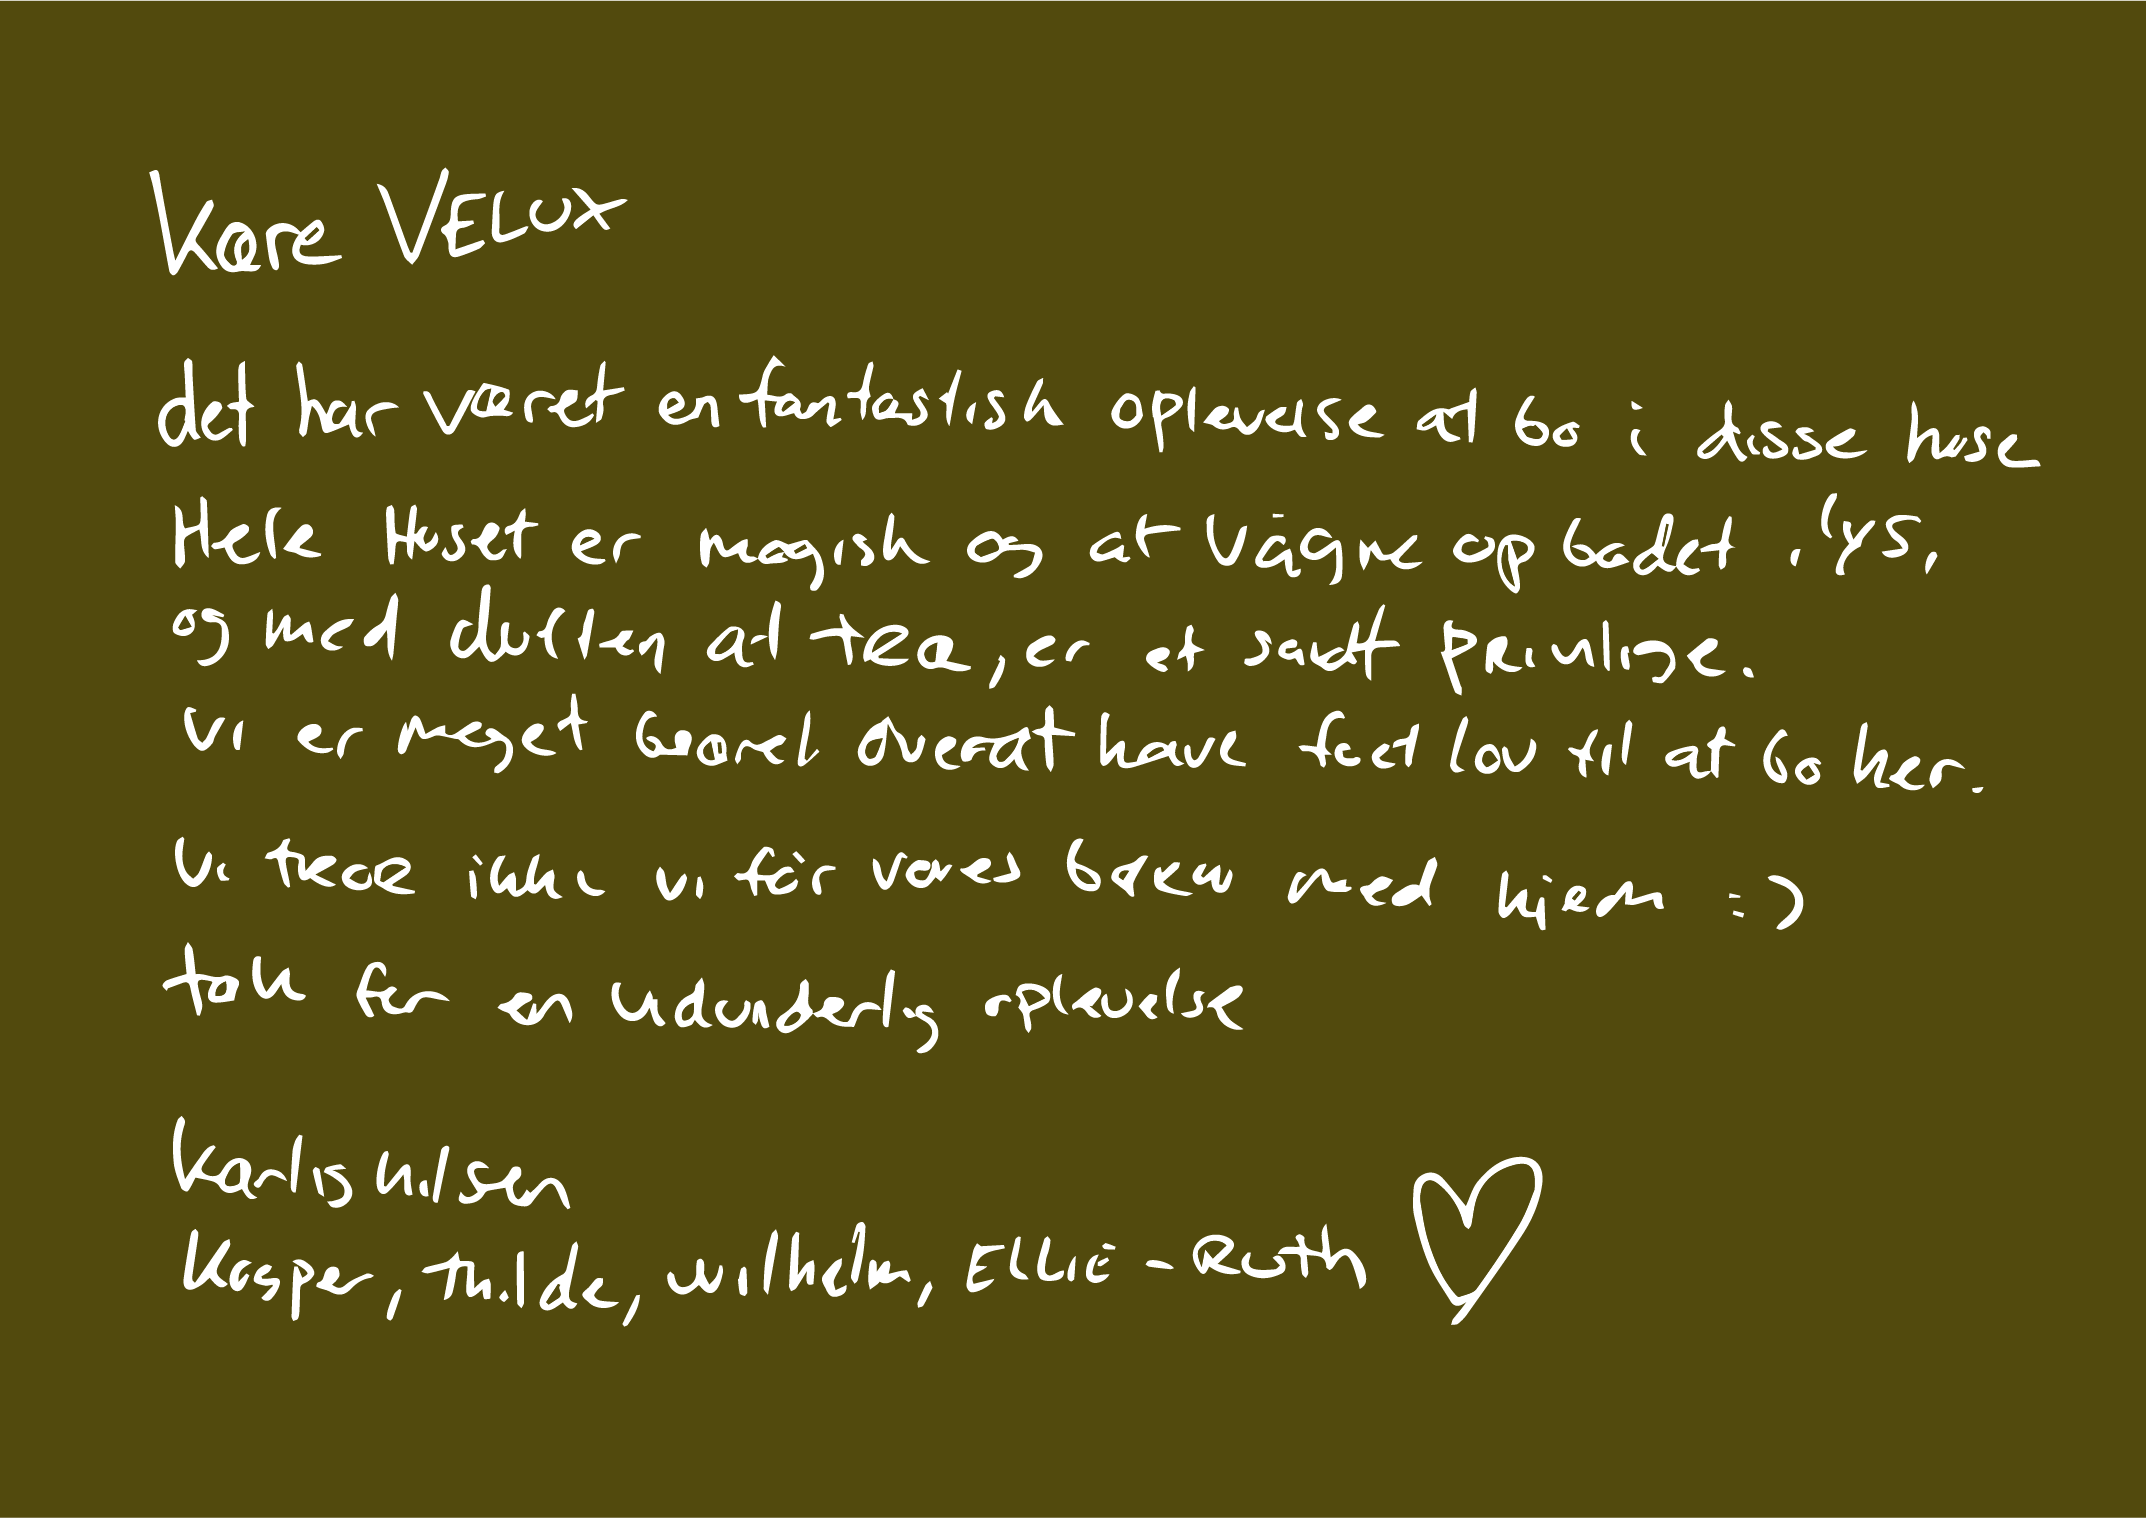 Kære VELUX
det har været en fantastisk oplevelse at bo i disse huse
Hele Huset er magisk og at vågne op badet i lys,
og med duften af træ, er et sandt privilige.
vi er meget over at have fået lov til at bo her.
Vi tror ikke vi får vores børn med hjem :-)
tak for en vidunderlig oplevelse
Kasper, Thilde, Wilhelm, ELLIE-RUTH ♡